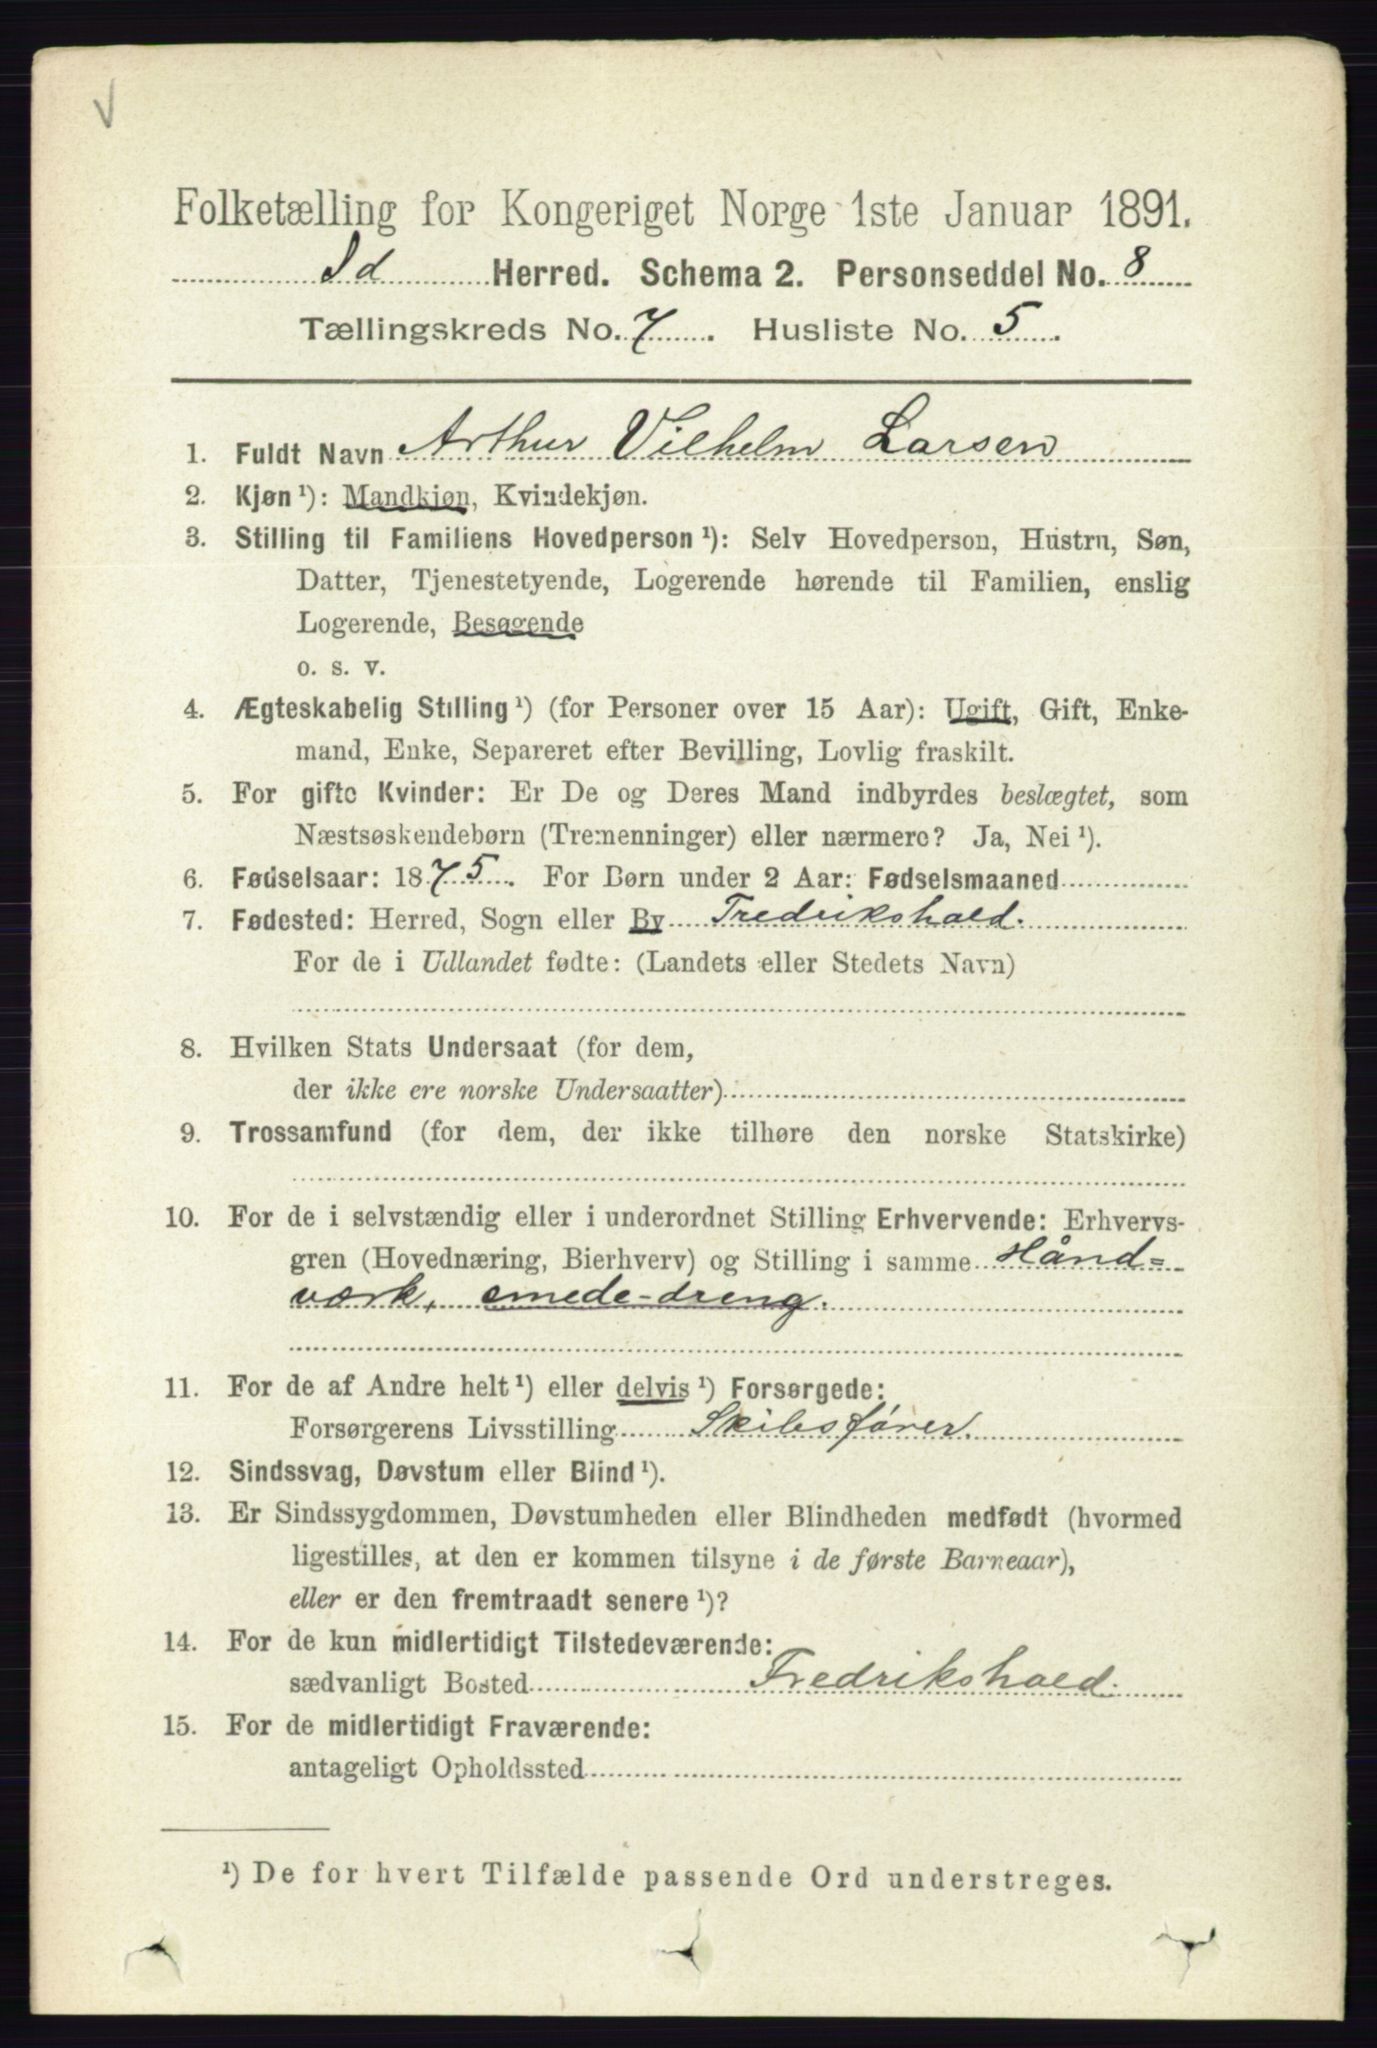 V
Folketælling for Kongeriget Norge 1ste Januar 1891.
Id Herred. Schema 2. Personseddel No. 8
Tællingskreds No. 7. Husliste No. 5.
1. Fuldt Navn Arthur Vilhelm Larsen
2. Kjøn ¹): Mandkjøn, Kvindekjøn.
3. Stilling til Familiens Hovedperson ¹): Selv Hovedperson, Hustru, Søn,
Datter, Tjenestetyende, Logerende hørende til Familien, enslig
Logerende, Besøgende
o. s. v.
4. Ægteskabelig Stilling ¹) (for Personer over 15 Aar): Ugift, Gift, Enke-
mand, Enke, Separeret efter Bevilling, Lovlig fraskilt.
5. For gifte Kvinder: Er De og Deres Mand indbyrdes beslægtet, som
Næstsøskendebørn (Tremenninger) eller nærmere? Ja, Nei ¹).
6. Fødselsaar: 1875. For Børn under 2 Aar: Fødselsmaaned
7. Fødested: Herred, Sogn eller By Fredrikshald.
For de i Udlandet fødte: (Landets eller Stedets Navn)
8. Hvilken Stats Undersaat (for dem,
der ikke ere norske Undersaatter)
9. Trossamfund (for dem, der ikke tilhøre den norske Statskirke)
10. For de i selvstændig eller i underordnet Stilling Erhvervende: Erhvervs-
gren (Hovednæring, Bierhverv) og Stilling i samme Hånd=
værk, smede-dreng.
11. For de af Andre helt ¹) eller delvis ¹) Forsørgede:
Forsørgerens Livsstilling Skibsfører.
12. Sindssvag, Døvstum eller Blind ¹).
13. Er Sindssygdommen, Døvstumheden eller Blindheden medfødt (hvormed
ligestilles, at den er kommen tilsyne i de første Barneaar),
eller er den fremtraadt senere ¹)?
14. For de kun midlertidigt Tilstedeværende:
sædvanligt Bosted Fredrikshald.
15. For de midlertidigt Fraværende:
antageligt Opholdssted
¹) De for hvert Tilfælde passende Ord understreges.